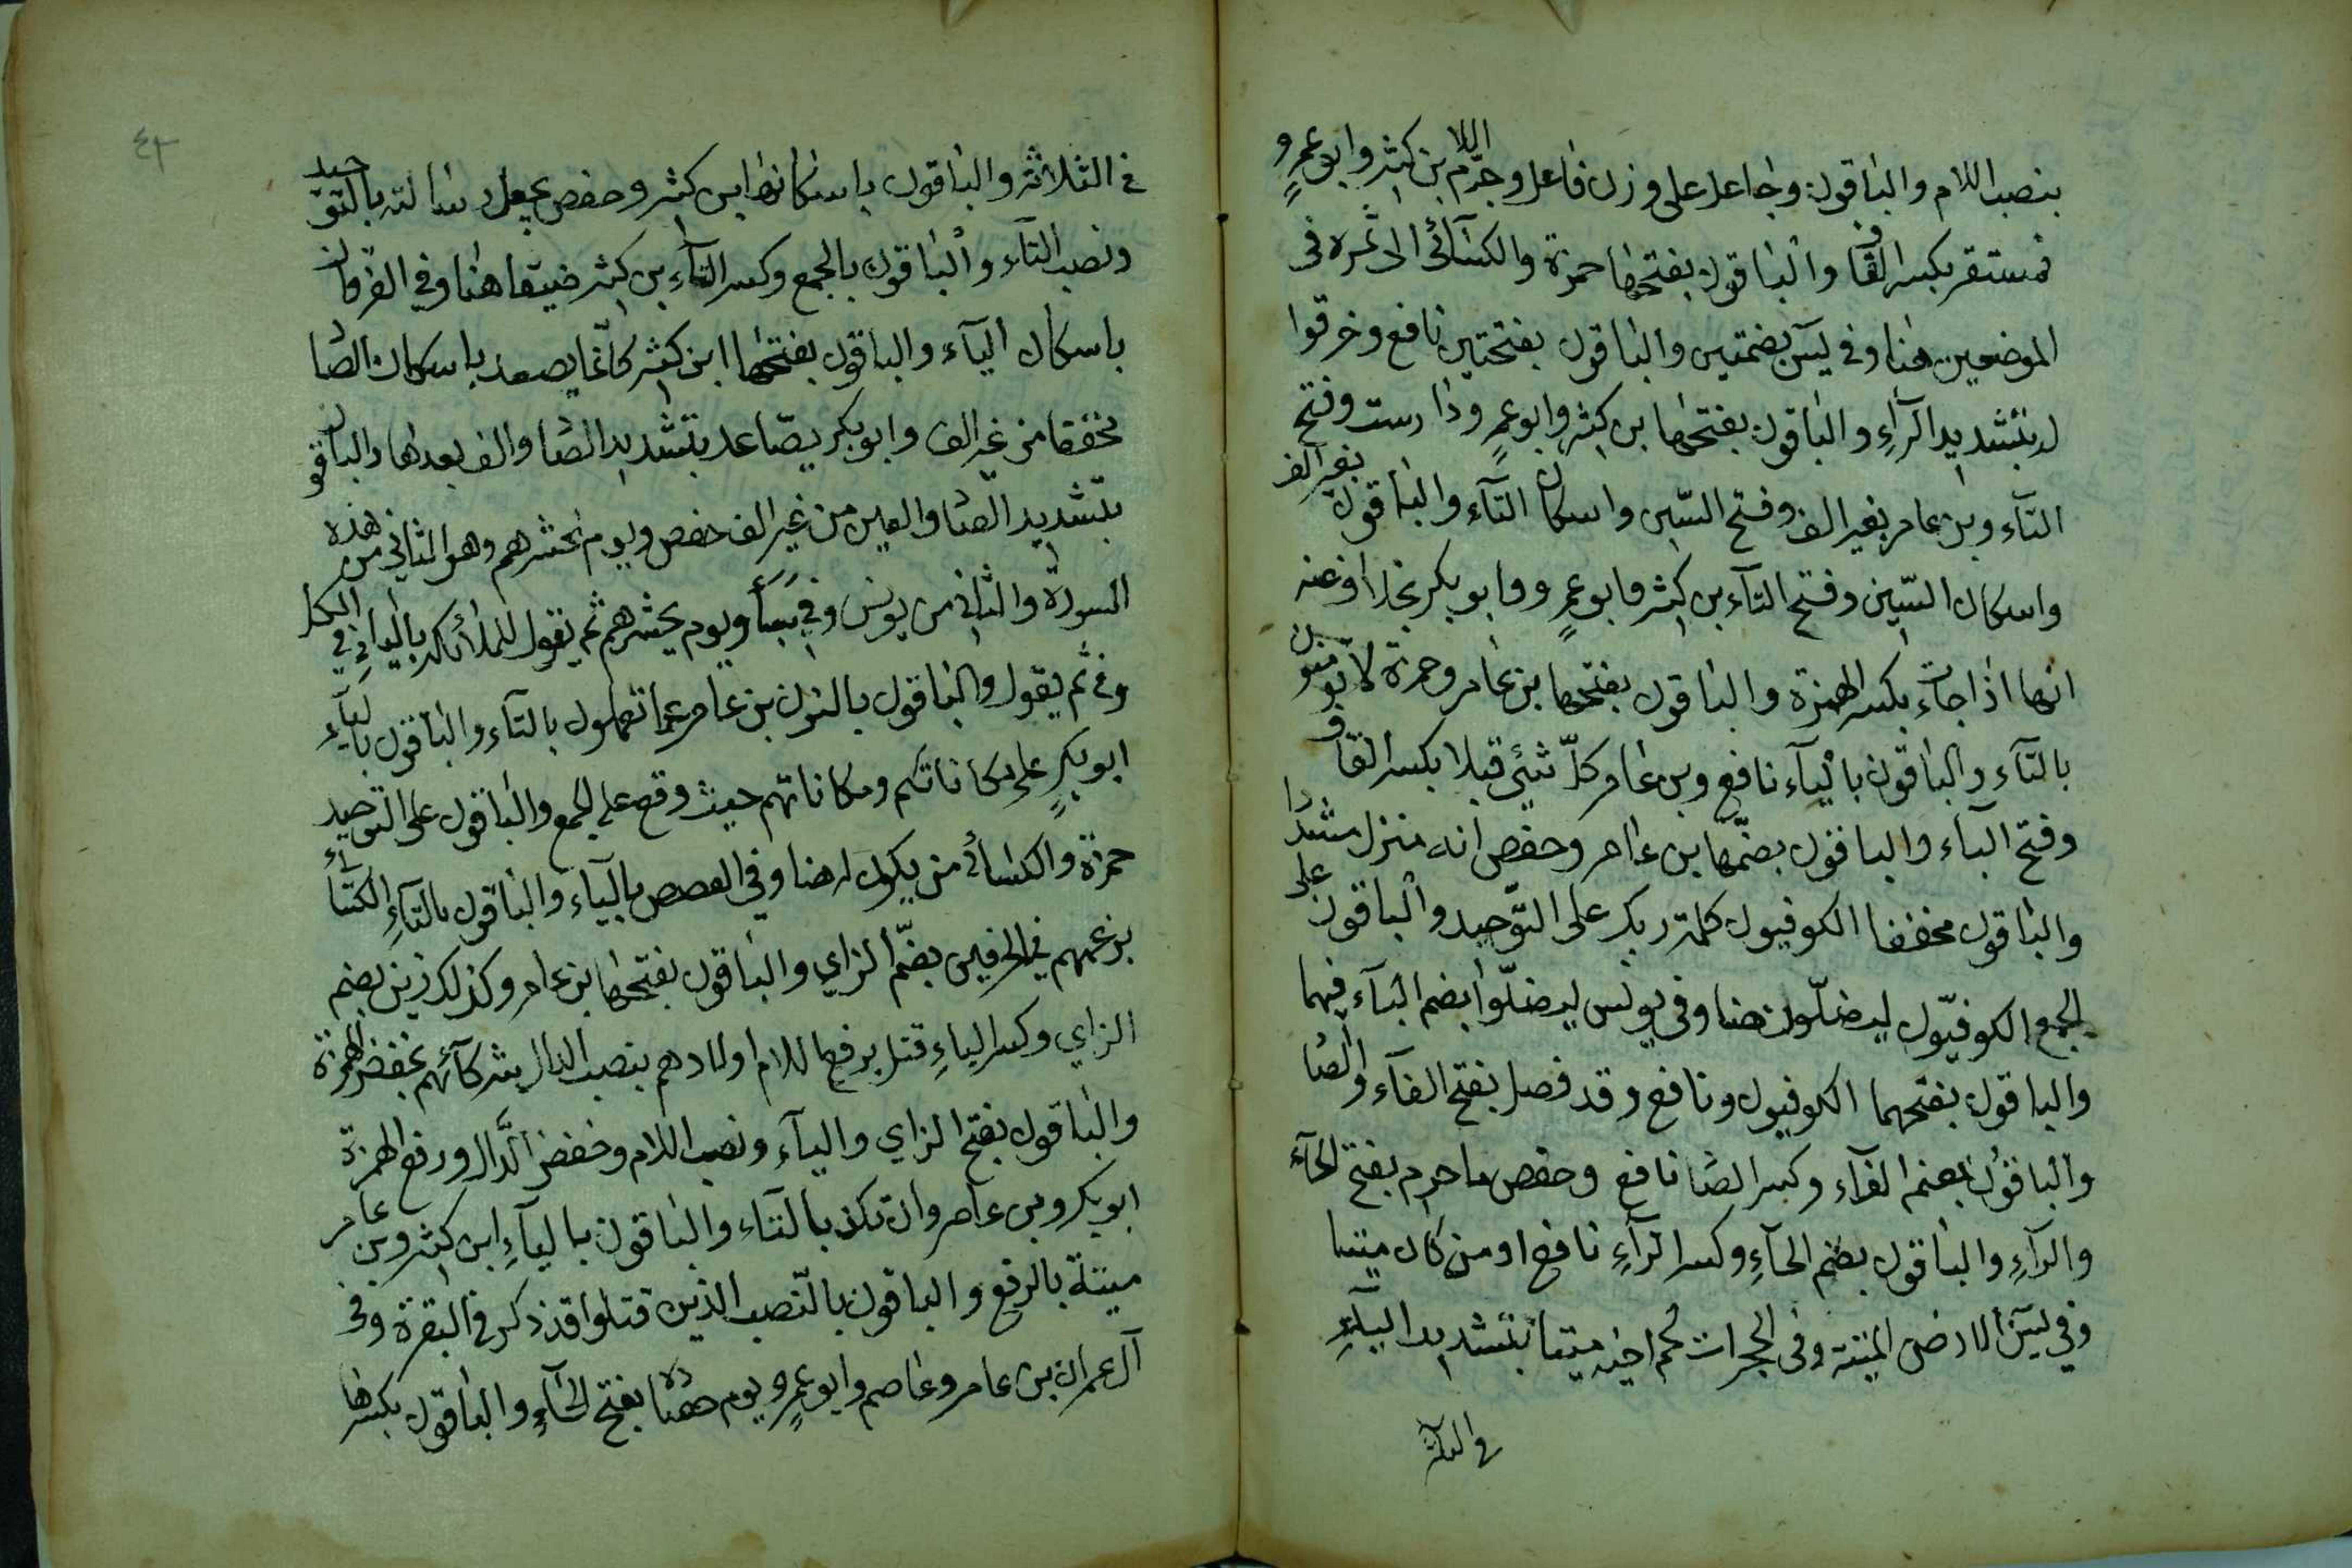 بنصب اللام والباقون وجاعل على وزن فاعل وجرّ اللام بن كثير وابو عمرٍو
فمستقر بكسر القاف والباقون بفتحها حمزة والكسآئى الى ثمره فى
الموضعين هنا وفى يس بضمتين والباقون بفتحتين نافع وخرقوا
له بتشديد الرآءِ والباقون بفتحها بن كثير وابو عمرٍ ودارست وفتح
التآء وبن عامر بغير الف وفتح السّين واسكان التآء والباقون بغير الف
واسكان السّين وفتح التآء بن كثير وابو عمرٍو وابو بكر بخلاف عنه
انها اذا جاءت بكسر الهمزة والباقون بفتحها بن عامر وحمزة لا تؤمنون
بالتآء والباقون باليآء نافع وبن عامر كلّ شئي قبلا بكسر القاف
وفتح الباء والباقون بضمّها بن عامر وحفص انه منزل مشددا
والباقون مخففا الكوفيون كلمة ربك على التّوحيد والباقون على
الجمع الكوفيّون ليضلّون هنا وفى يونس ليضلّوا بضم اليآء فيهما
والباقون بفتحهما الكوفيون ونافع وقد فصل بفتح الفآء والصا
والباقون بضم الفآء وكسر الصا نافع وحفص ما حرم بفتح الحآء
والرآءِ والباقون بضم الحآءِ وكسر الرآءِ نافع او من كان ميتا
وفي يس الارض الميتة وفى الحجرات لحم اخيه ميتا بتشديد اليآءِ
فى الثلاثة
٤٣
فى الثلاثة والباقون باسكانها ابن كثير وحفص يجعل رسالته بالتوحيد
ونصب التاء والباقون بالجمع وكسر التآء بن كثير ضيقا هنا وفي الفرقان
باسكان اليآء والباقون بفتحها ابن كثير كانما يصعد باسكان الصا
مخففا من غير الف وابو بكر يصّاعد بتشديد الصا والف بعدها والباقون
بتشديد الصا والعين من غير الف حفص ويوم نحشرهم وهو الثاني من هذه
السورة والثاني من يونس وفي سبأ ويوم يحشرهم ثم يقول للملائكة بالياء في الكل
وفى ثم يقول والباقون بالنون بن عامر عما تعملون بالتآء والباقون باليآء
ابو بكرٍ على مكاناتكم ومكاناتهم حيث وقع على الجمع والباقون على التوحيد
حمزة والكسائى من يكون له هنا وفي القصص باليآء والباقون بالتآءِ الكسائى
بزعمهم في الحرفين بضمّ الزاي والباقون بفتحها بن عامر وكذلك زين بضم
الزاي وكسر الياءِ قتل برفع اللام اولادهم بنصب الدال شركآئهم بخفض الهمزة
والباقون بفتح الزاي واليآء ونصب اللام وخفض الدّال ورفع الهمزة
ابو بكر وبن عامر وان تكن بالتاء والباقون باليآءِ ابن كثير وبن عامر
ميتة بالرفع والباقون بالنّصب الذين قتلوا قد ذكر فى البقرة وفى
آل عمران بن عامر وعاصم وابو عمرٍو يوم حصاده بفتح الحآءِ والباقون بكسرها